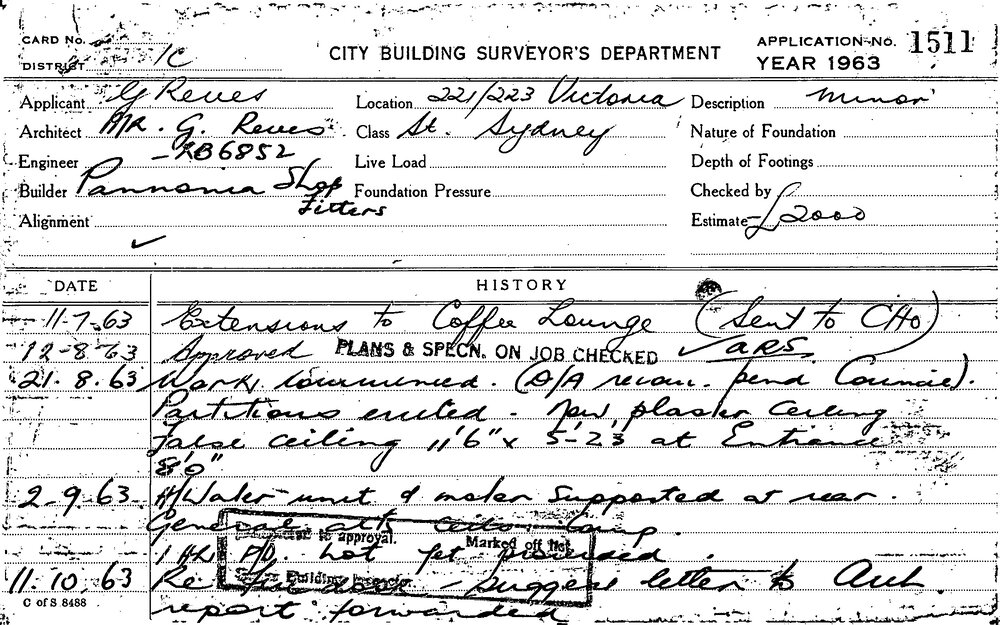 CARD No.
DISTRICT 1C
CITY BUILDING SURVEYOR'S DEPARTMENT
APPLICATION No. 1511
YEAR 1963
Applicant G Reves
Location 221/223 Victoria
Description Minor
Architect Mr. G. Reves
Class St. Sydney
Nature of Foundation
Engineer - RB6852
Live Load
Depth of Footings
Builder Pannonia Shop Fitters
Foundation Pressure
Checked by
Alignment
Estimate £2000
DATE
HISTORY
11-7-63 Extensions to Coffee Lounge (Sent to CHO)
12-8-63 Approved PLANS & SPECN. ON JOB CHECKED ARS.
21.8.63 Work commenced. (D/A recom. pend Council).
Partitions erected - New plaster ceiling
False ceiling 11'6" x 5-23 at Entrance
8'0"
2-9-63 H/Water unit & motor supported at rear.
General
approval. Marked off list
1 Hr not yet provided.
Building Inspector
11.10.63 Re - Suggest letter to Arch
report forwarded
C of S 8488